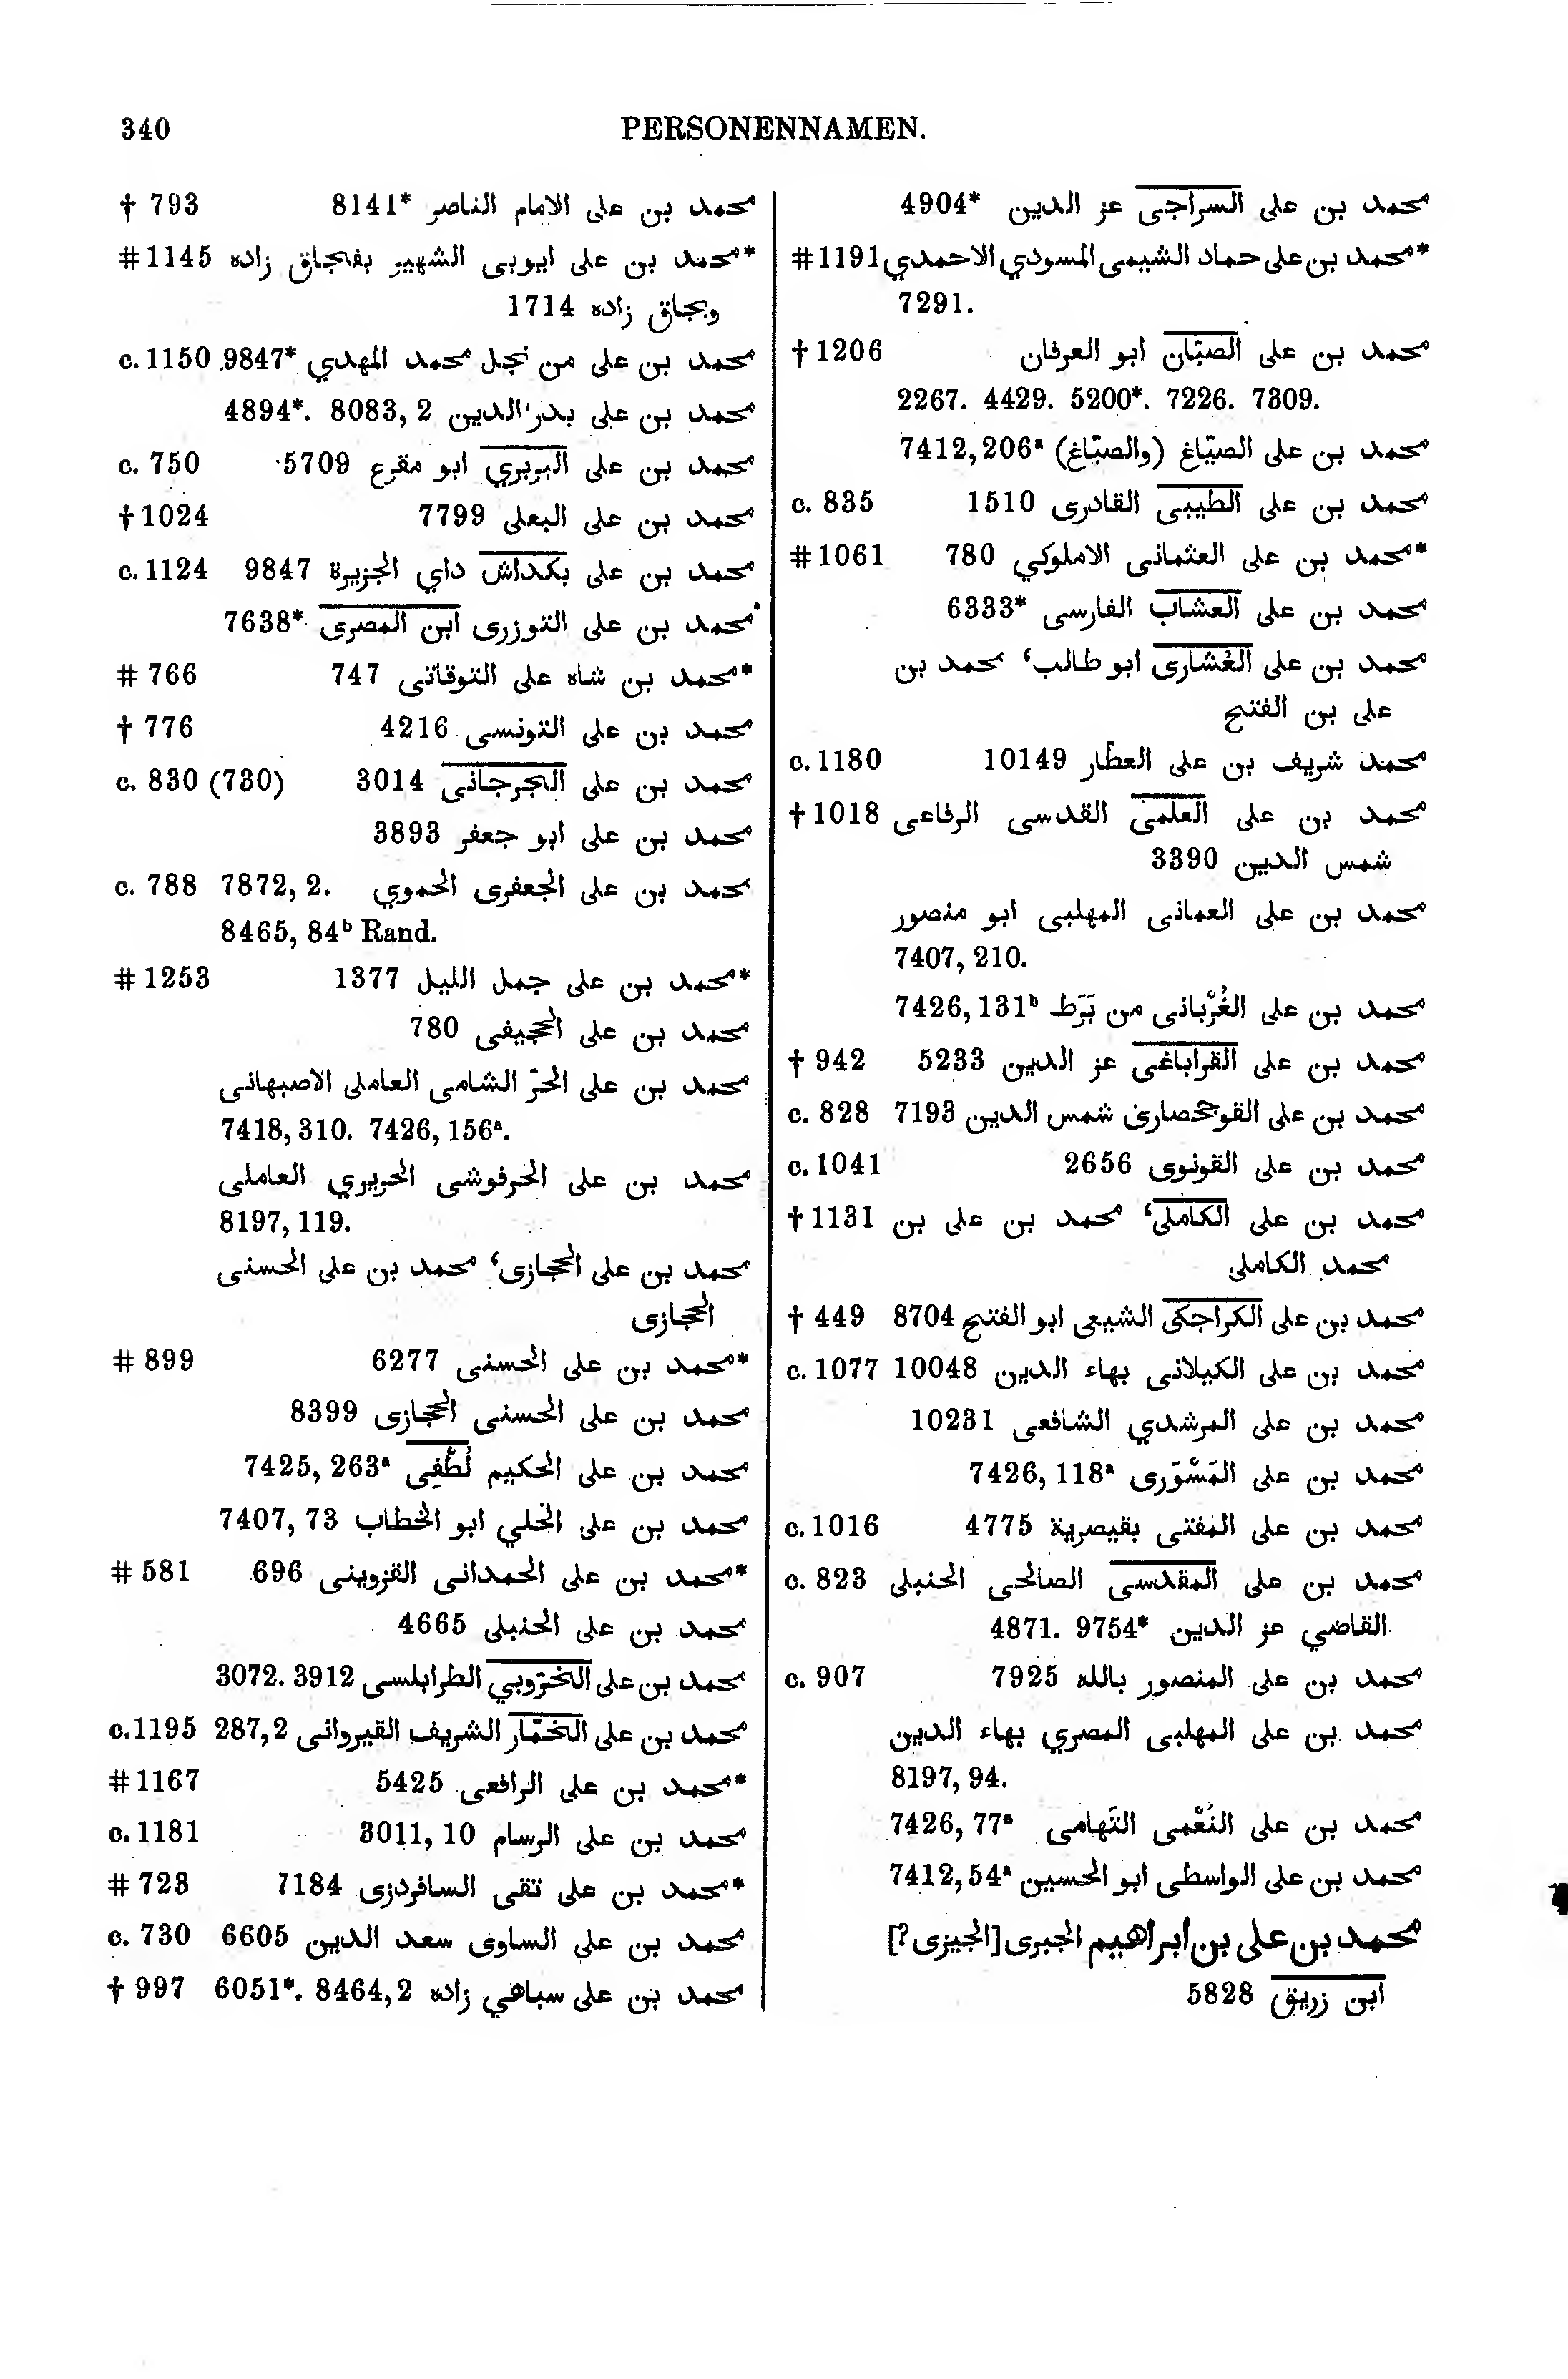 340 PERSONENNAMEN.
† 793 محمد بن على الامام الناصر 8141*
# 1145 *محمد بن على ايوبى الشهير بفاجاق زاده
وبجاق زاده 1714
c. 1150 محمد بن على من نجل محمد المهدي 9847*.
محمد بن على بدر الدين 8083, 2 .4894*
c. 750 محمد بن على البربري ابو مقرع 5709
† 1024 محمد بن على البعلى 7799
c. 1124 محمد بن على بكداش داي الجزيرة 9847
محمد بن على التوزرى ابن المصرى 7638*
# 766 *محمد بن شاه على التوقاتى 747
† 776 محمد بن على التونسى 4216
c. 830 (730) محمد بن على الجرجانى 3014
محمد بن على ابو جعفر 3893
c. 788 محمد بن على الجعفرى الحموي 7872, 2.
8465, 84ᵇ Rand.
# 1253 *محمد بن على جمل الليل 1377
محمد بن على الحجيفى 780
محمد بن على الحرّ الشامى العاملى الاصبهانى
7418, 310. 7426, 156ᵃ.
محمد بن على الحرفوشى الحريري العاملى
8197, 119.
محمد بن على الحجازى، محمد بن على الحسنى
الحجازى
# 899 *محمد بن على الحسنى 6277
محمد بن على الحسنى الحجازى 8399
محمد بن على الحكيم لُطْفِى 7425, 263ᵃ
محمد بن على الخلي ابو الخطاب 7407, 73
# 581 *محمد بن على الحمدانى القزوينى 696
محمد بن على الحنبلى 4665
محمد بن على الخرّوبي الطرابلسى 3912 .3072
c. 1195 محمد بن على الختّار الشريف القيروانى 287,2
# 1167 *محمد بن على الرافعى 5425
c. 1181 محمد بن على الرسام 3011, 10
# 723 *محمد بن على تقى السافردزى 7184
c. 730 محمد بن على الساوى سعد الدين 6605
† 997 محمد بن على سباهي زاده 8464,2 .6051*
محمد بن على السراجى عز الدين 4904*
# 1191 *محمد بن على حماد الشبيمى المسودي الاحمدي
7291.
† 1206 محمد بن على الصبّان ابو العرفان
2267. 4429. 5200*. 7226. 7309.
محمد بن على الصيّاغ (والصبّاغ) 7412, 206ᵃ
c. 835 محمد بن على الطيبى القادرى 1510
# 1061 *محمد بن على العثمانى الاملوكي 780
محمد بن على العشاب الفارسى 6333*
محمد بن على العُشارى ابو طالب، محمد بن
على بن الفتح
c. 1180 محمد شريف بن على العطّار 10149
† 1018 محمد بن على العلمى القدسى الرفاعى
شمس الدين 3390
محمد بن على العمانى المهلبى ابو منصور
7407, 210.
محمد بن على الغُرْبانى من بَرَط 7426, 131ᵇ
† 942 محمد بن على القراباغى عز الدين 5233
c. 828 محمد بن على القوجحصارى شمس الدين 7193
c. 1041 محمد بن على القونوى 2656
† 1131 محمد بن على الكاملى، محمد بن على بن
محمد الكاملى
† 449 محمد بن على الكراجكى الشيعى ابو الفتح 8704
c. 1077 محمد بن على الكيلانى بهاء الدين 10048
محمد بن على المرشدي الشافعى 10231
محمد بن على المَسْوَرى 7426, 118ᵃ
c. 1016 محمد بن على المفتى بقيصرية 4775
c. 823 محمد بن على المقدسى الصالحى الحنبلى
القاضي عز الدين 9754* .4871
c. 907 محمد بن على المنصور بالله 7925
محمد بن على المهلبى المصري بهاء الدين
8197, 94.
محمد بن على النُعْمى التَهامى 7426, 77ᵃ
محمد بن على الواسطى ابو الحسين 7412, 54ᵃ
محمد بن على بن ابراهيم الجبرى [الجيزى ?]
ابن زريق 5828